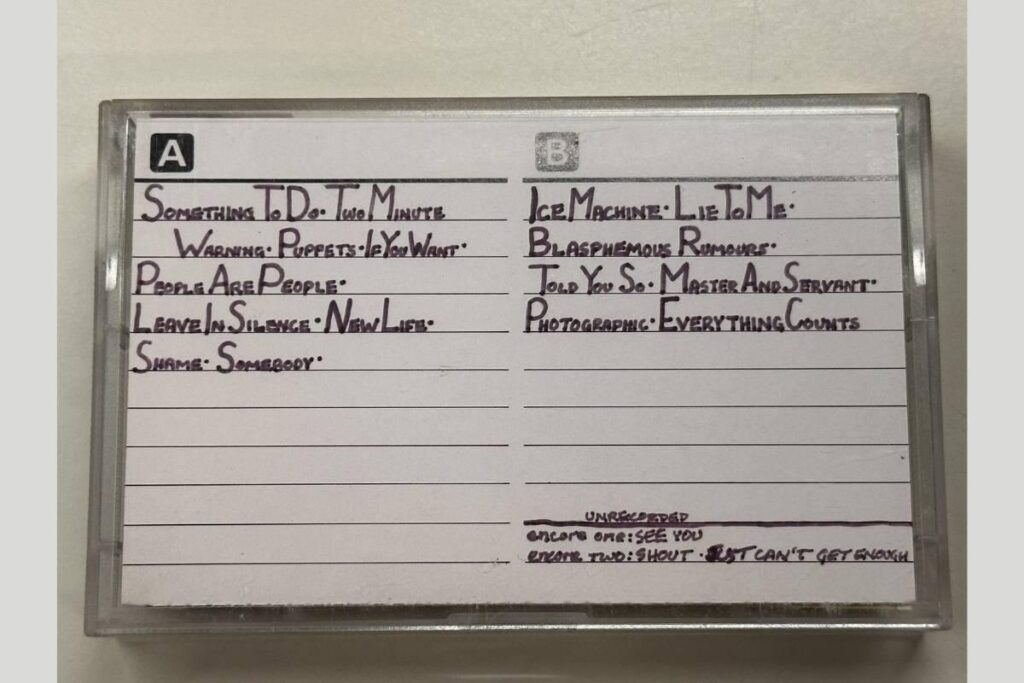 A
SOMETHING TO DO · TWO MINUTE
WARNING · PUPPETS · IF YOU WANT ·
PEOPLE ARE PEOPLE ·
LEAVE IN SILENCE · NEW LIFE ·
SHAME · SOMEBODY ·
B
ICE MACHINE · LIE TO ME ·
BLASPHEMOUS RUMOURS ·
TOLD YOU SO · MASTER AND SERVANT ·
PHOTOGRAPHIC · EVERYTHING COUNTS
UNRECORDED
encore one: SEE YOU
encore TWO: SHOUT · JUST CAN'T GET ENOUGH